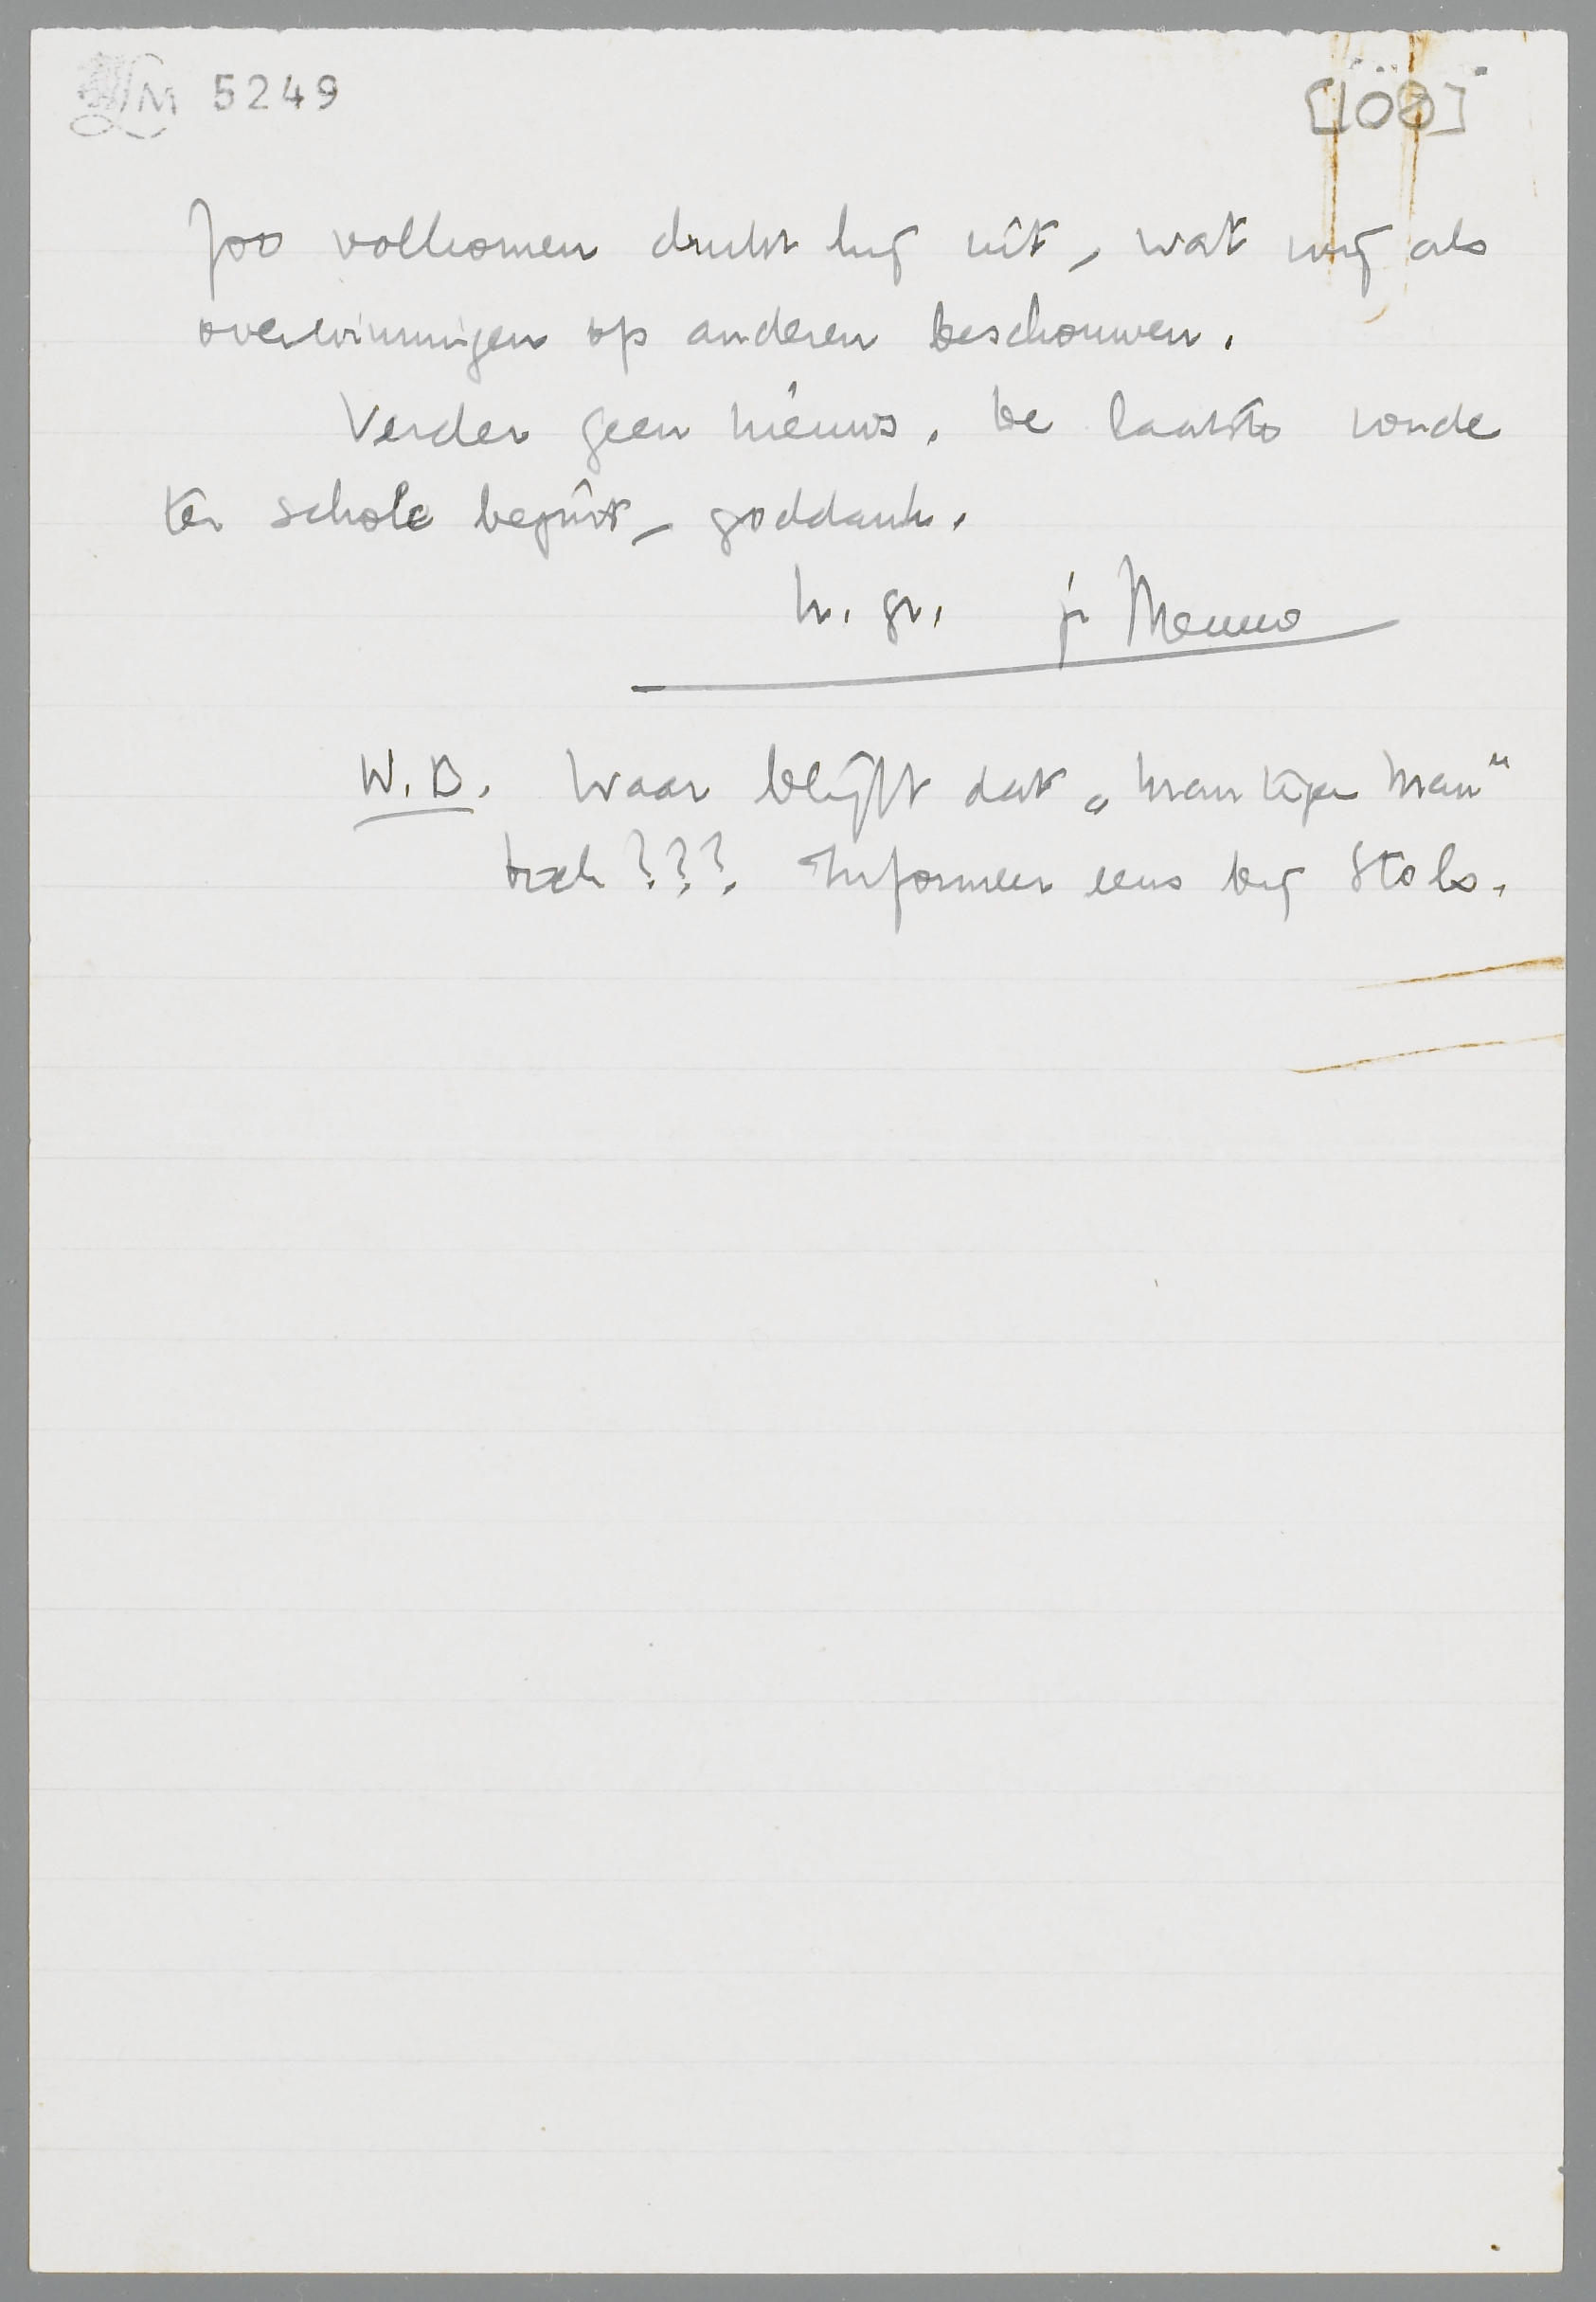 LM 5249
[108]
Zoo volkomen drukt hij uit, wat wij als
overwinningen op anderen beschouwen.
Verder geen nieuws. De laatste ronde
ter schole begint, goddank.
h. gr. je Menno
N.B. Waar blijft dat „Man tegen Man"
toch??? Informeer eens bij Stols.